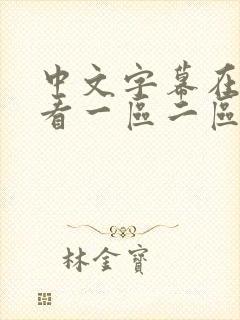 中文字幕在
看一區二區
林金寶